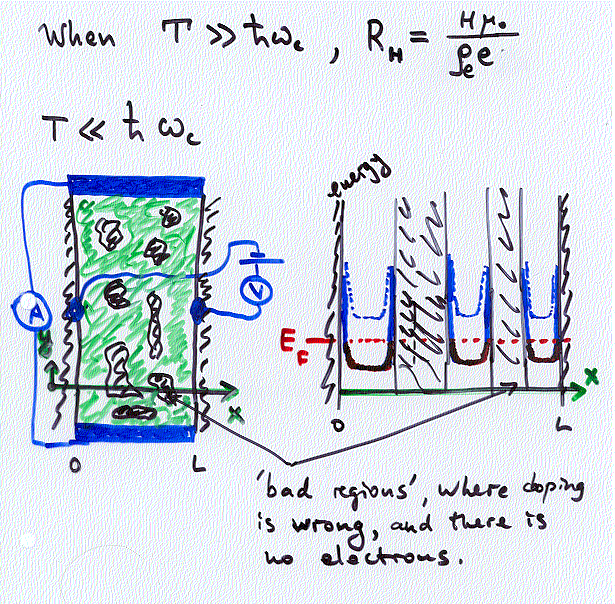 When T ≫ ħωc , R_H = Hμ₀ / ρ_e e
T ≪ ħ ωc
energy
A
V
E_F
x
x
0 L
0 L
'bad regions', where doping
is wrong, and there is
no electrons.